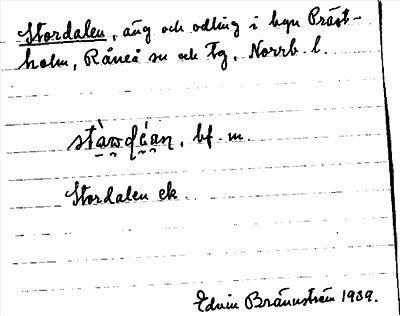 Stordalen, äng och odling i byn Präst-
holm, Råneå sn och tg, Norrb. l.
bf. m.
Stordalen ek.
Edvin Brännström 1939.